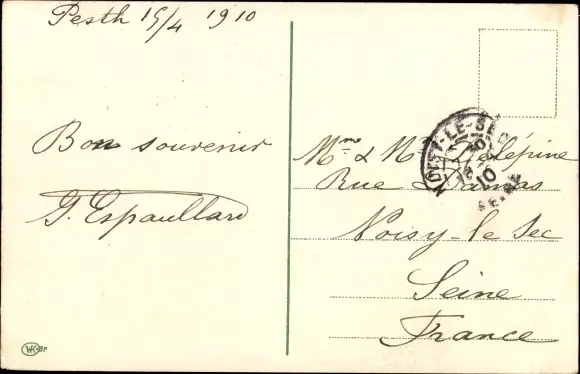 Pesth 15/4 1910
Bon souvenir
G. Espaullard
Mme & Mr Delépine
Rue Damas
Noisy-le Sec
Seine
France
NOISY-LE-SEC
10
SEINE